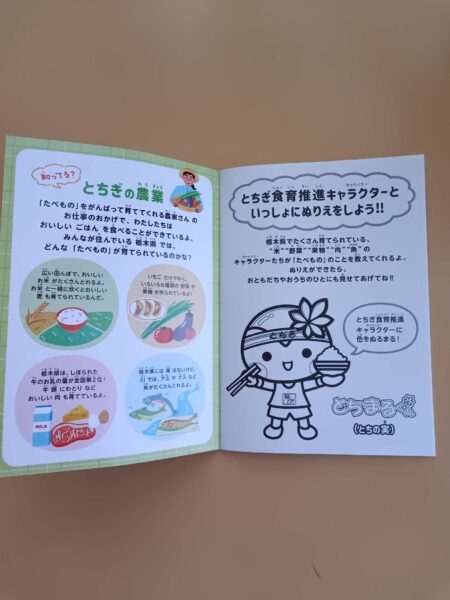 知ってる?
とちぎの農業
「たべもの」をがんばって育ててくれる農家さんの
お仕事のおかげで、わたしたちは
おいしい ごはん を食べることができているよ。
みんなが住んでいる 栃木県 では、
どんな「たべもの」が育てられているのかな?
広い田んぼで、おいしい
お米 がたくさんとれるよ。
お米 と一緒に炊くとおいしい
麦 も育てられているんだ。
いちご だけでなく、
いろいろな種類の 野菜 や
果物 が作られているよ!
栃木県は、しぼられた
牛のお乳の量が全国第2位!
牛 豚 にわとり など
おいしい 肉 も育てているよ。
MILK
栃木県には 海 はないけど、
川 では、アユ や マス など
魚がたくさんとれるよ。
とちぎ食育推進キャラクターと
いっしょにぬりえをしよう!!
栃木県でたくさん育てられている、
"米" "野菜" "果物" "肉" "魚" の
キャラクターたちが「たべもの」のことを教えてくれるよ。
ぬりえができたら、
おともだちやおうちのひとにも見せてあげてね!!
とちぎ食育推進
キャラクターに
色をぬるまる!
とちぎ
とちまるくん
(とちの実)